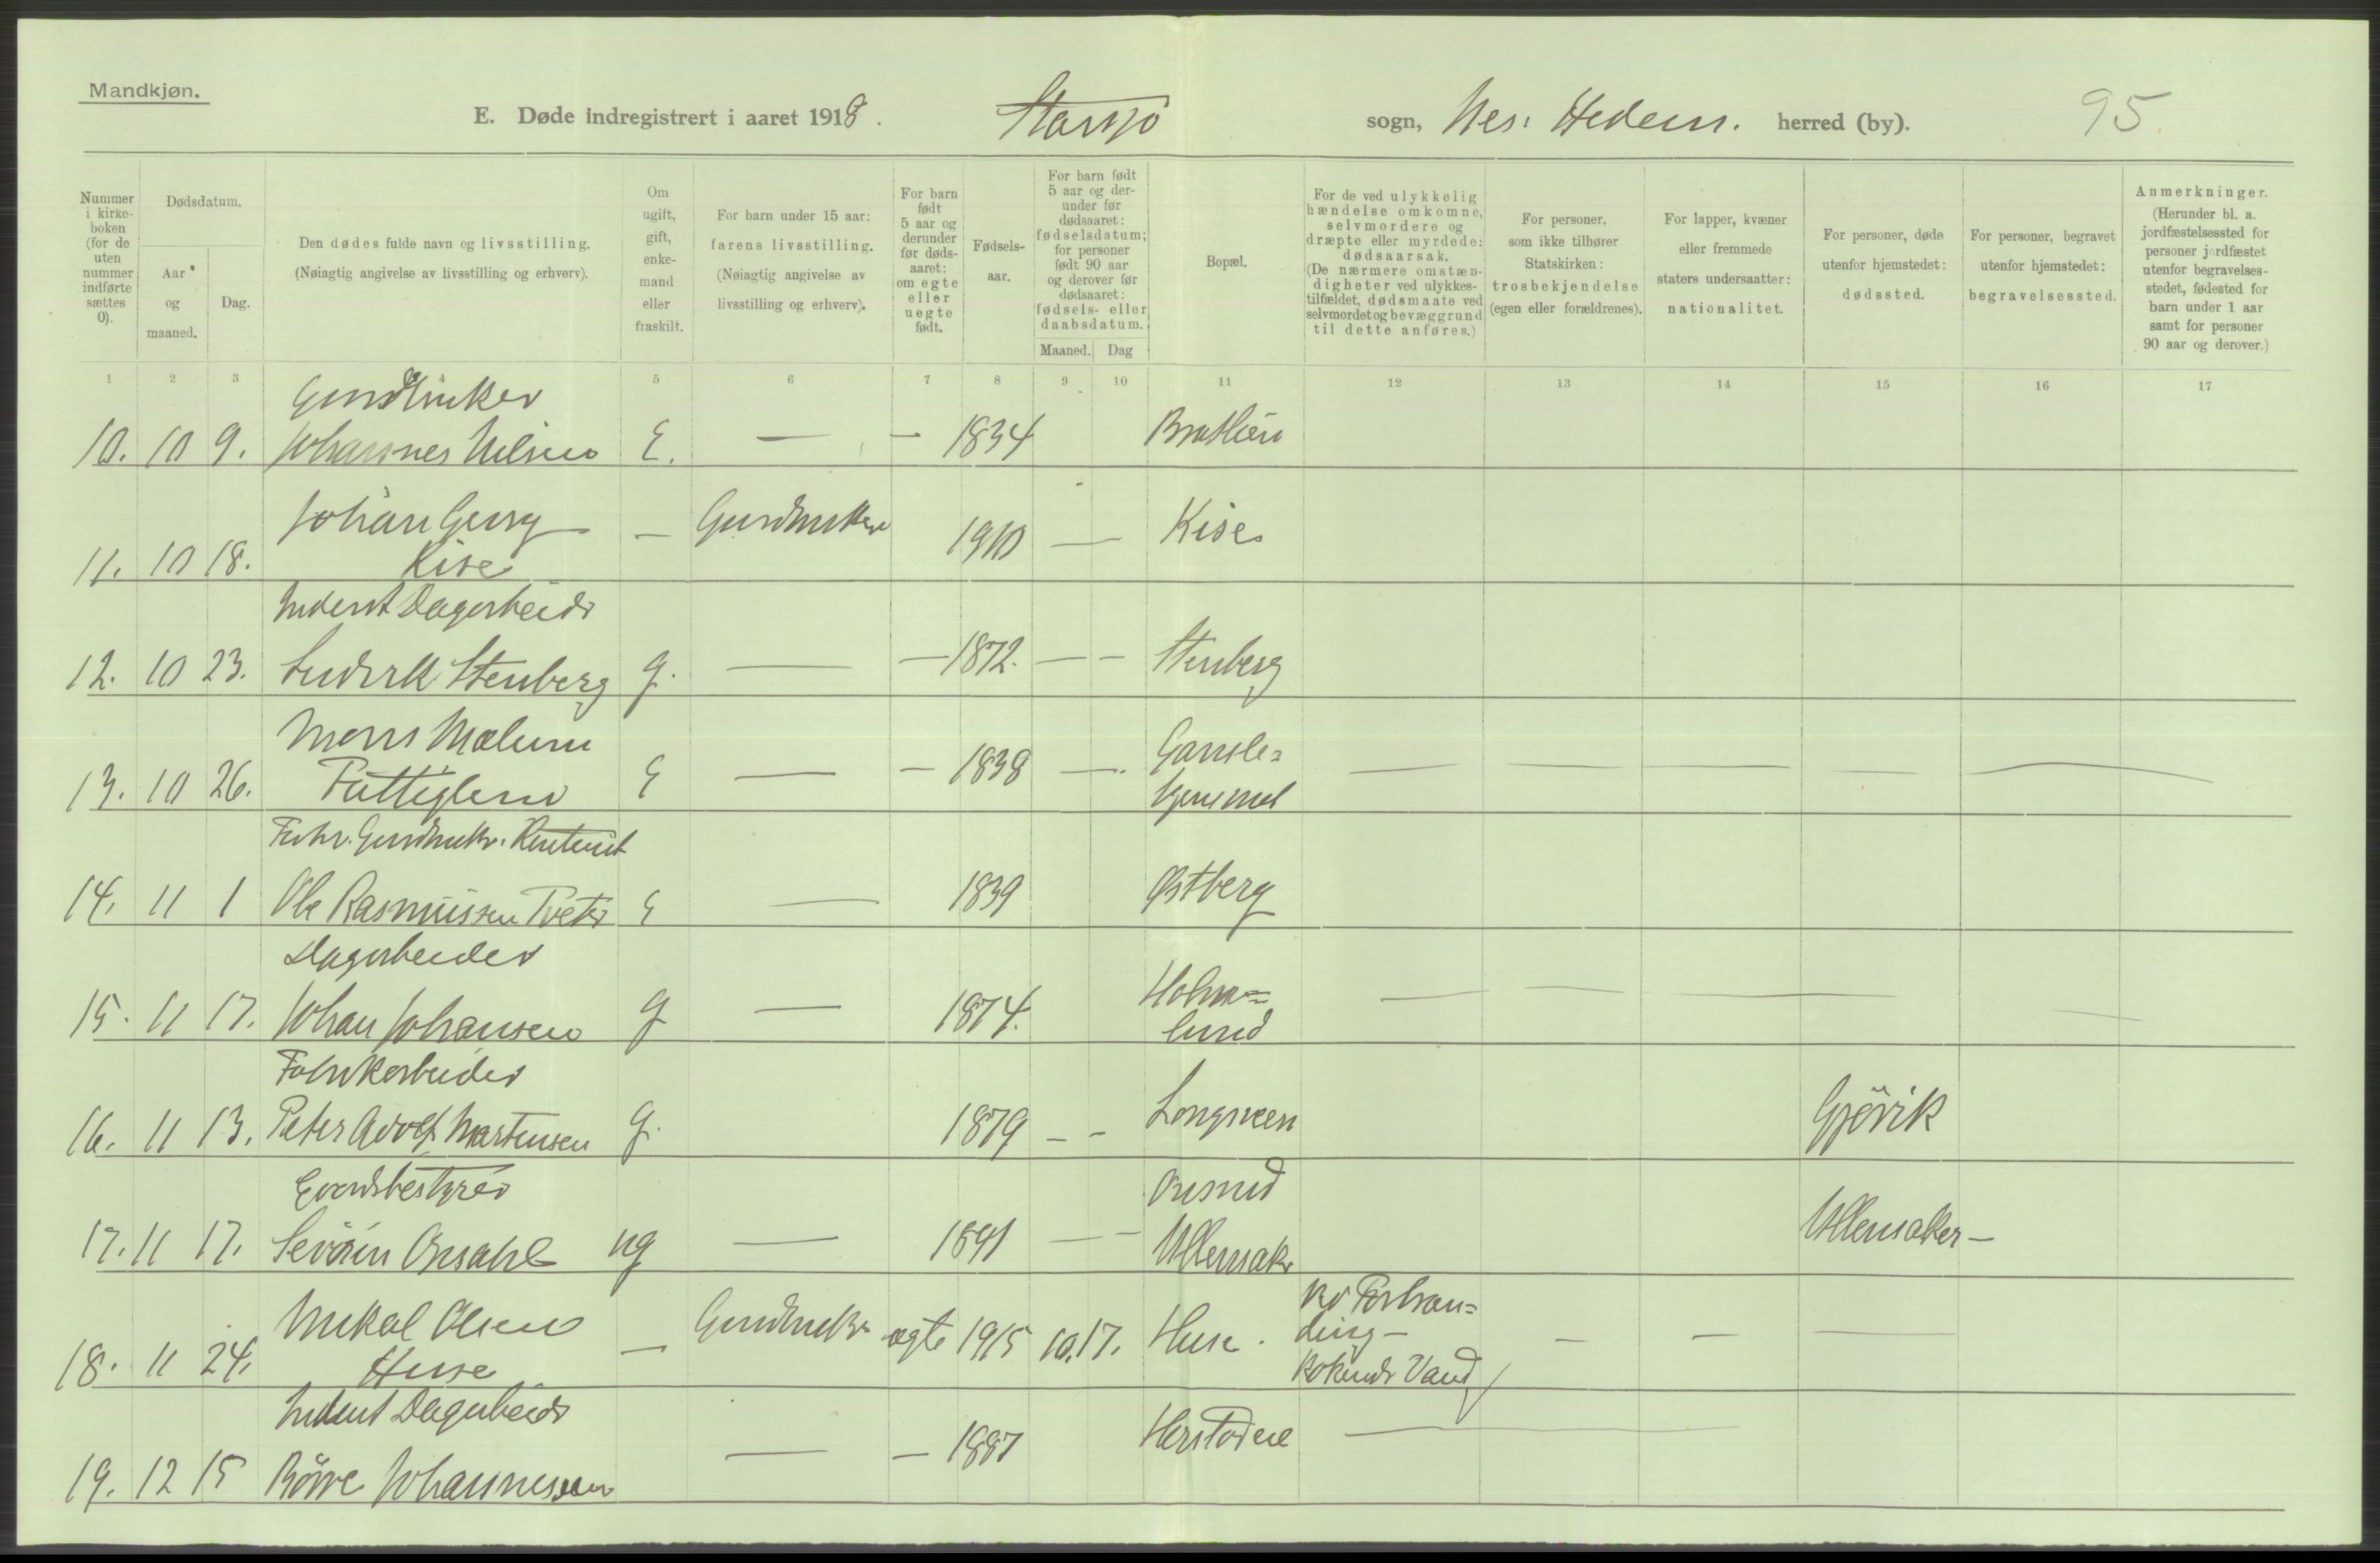 Mandkjøn.
E. Døde indregistrert i aaret 1918. sogn, Nes. Hedem. herred (by). 95.
Nummer i kirkeboken (for de uten nummer indførte sættes 0).
Dødsdatum.
Aar og maaned.
Dag.
Den dødes fulde navn og livsstilling.
(Nøiagtig angivelse av livsstilling og erhverv).
Om ugift, gift, enkemand eller fraskilt.
For barn under 15 aar: farens livsstilling.
(Nøiagtig angivelse av livsstilling og erhverv).
For barn født 5 aar og derunder før dødsaaret: om egte eller uegte født.
Fødselsaar.
For barn født 5 aar og derunder før dødsaaret: fødselsdatum; for personer født 90 aar og derover før dødsaaret: fødsels- eller daabsdatum.
Maaned. Dag
Bopæl.
For de ved ulykkelig hændelse omkomne, selvmordere og dræpte eller myrdede: dødsaarsak.
(De nærmere omstændigheter ved ulykkestilfældet, dødsmaate ved selvmordet og bevæggrund til dette anføres.)
For personer, som ikke tilhører Statskirken: trosbekjendelse (egen eller forældrenes).
For lapper, kvæner eller fremmede staters undersaatter: nationalitet.
For personer, døde utenfor hjemstedet: dødssted.
For personer, begravet utenfor hjemstedet: begravelsessted.
Anmerkninger.
(Herunder bl. a. jordfæstelsessted for personer jordfæstet utenfor begravelsesstedet, fødested for barn under 1 aar samt for personer 90 aar og derover.)
1 2 3 5 6 7 8 9 10 11 12 13 14 15 16 17
Gaardbruker
10. 10 9. Johannes Nilsen E. — — 1834 Bratlien
Johan Georg — Gaardbruker 1910 — Kise
11. 10 18. Kise
Inderst Dagarbeider
12. 10 23. Ludvik Stenberg g. — — 1872. — — Stenberg
Mons Mælum Gamle=
13. 10 26. Fattiglem E — — 1838 — hjemmet — — — — —
Forh. Gaardbruker. Rentenist
14. 11 1 Ole Rasmussen Tveter E — 1839 Østberg
Dagarbeider Holm=
15. 11 17. Johan Johansen g — 1874. lund — — — —
Fabrikarbeider
16. 11 13. Peter Adolf Martensen g. 1879 — — Longveen Gjøvik
Gaardsbestyrer
17. 11 17. ug — 1891 — — Ullensaker Ullensaker —
Mikal Olsen — Gaardbruker egte 1915 10. 17. Huse. Forbræn=
ding — — — —
18. 11 24. Huse kokende Vand
Inderst Dagarbeider
19. 12 15 Johannessen — — 1887 —